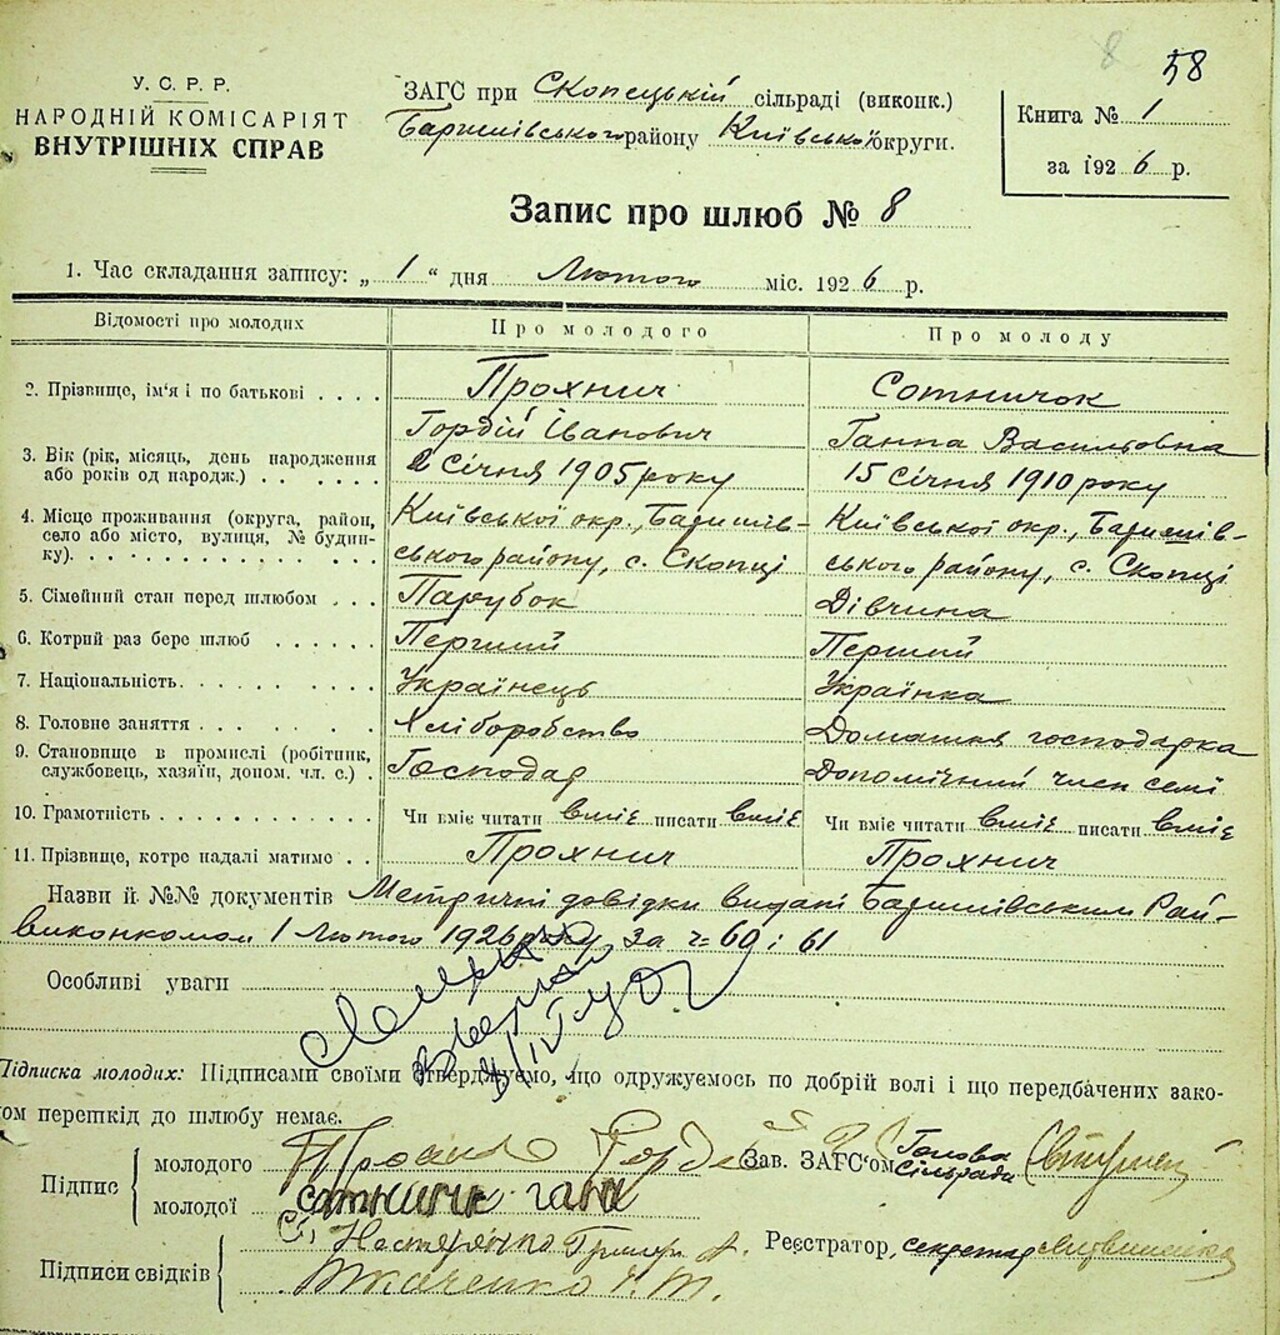 8 58
У. С. Р. Р.
НАРОДНІЙ КОМІСАРІЯТ
ВНУТРІШНІХ СПРАВ
ЗАГС при Скопецькій сільраді (виконк.)
Баришівського району Київської округи.
Книга № 1
за 1926 р.
Запис про шлюб № 8
1. Час складання запису: „1“ дня Лютого міс. 1926 р.
Відомості про молодих Про молодого Про молоду
2. Прізвище, ім'я і по батькові . . . . Прохнич Сотничок
Гордій Іванович Ганна Васильовна
3. Вік (рік, місяць, день народження або років од народж.) . . . . . . . 2 Січня 1905 року 15 Січня 1910 року
4. Місце проживання (округа, район, Київської окр., Баришів- Київської окр., Баришів-
село або місто, вулиця, № будин-
ку). . . . . . . . . . . . . . ського району, с. Скопці ського району, с. Скопці
5. Сімейний стан перед шлюбом . . . Парубок Дівчина
6. Котрий раз бере шлюб . . . . . . Перший Перший
7. Національність. . . . . . . . . . Українець Українка
8. Головне заняття . . . . . . . Хліборобство Домашня господарка
9. Становище в промислі (робітник,
службовець, хазяїн, допом. чл. с.) . Господар Допомічний член семї
10. Грамотність . . . . . . . . . . . . Чи вміє читати вміє писати вміє Чи вміє читати вміє писати вміє
11. Прізвище, котре надалі матиме . . Прохнич Прохнич
Назви й №№ документів Метричні довідки видані Баришівським Рай-
виконкомом 1 Лютого 1926 року за ч= 60 і 61
Особливі уваги
Підписка молодих: Підписами своїми стверджуємо, що одружуємось по добрій волі і що передбачених зако-
ом перешкід до шлюбу немає.
Підпис молодого Зав. ЗАГС'ом Голова
Сільради
молодої сотничик гана
Підписи свідків Нестеренко Реєстратор, секретар
Ткаченко